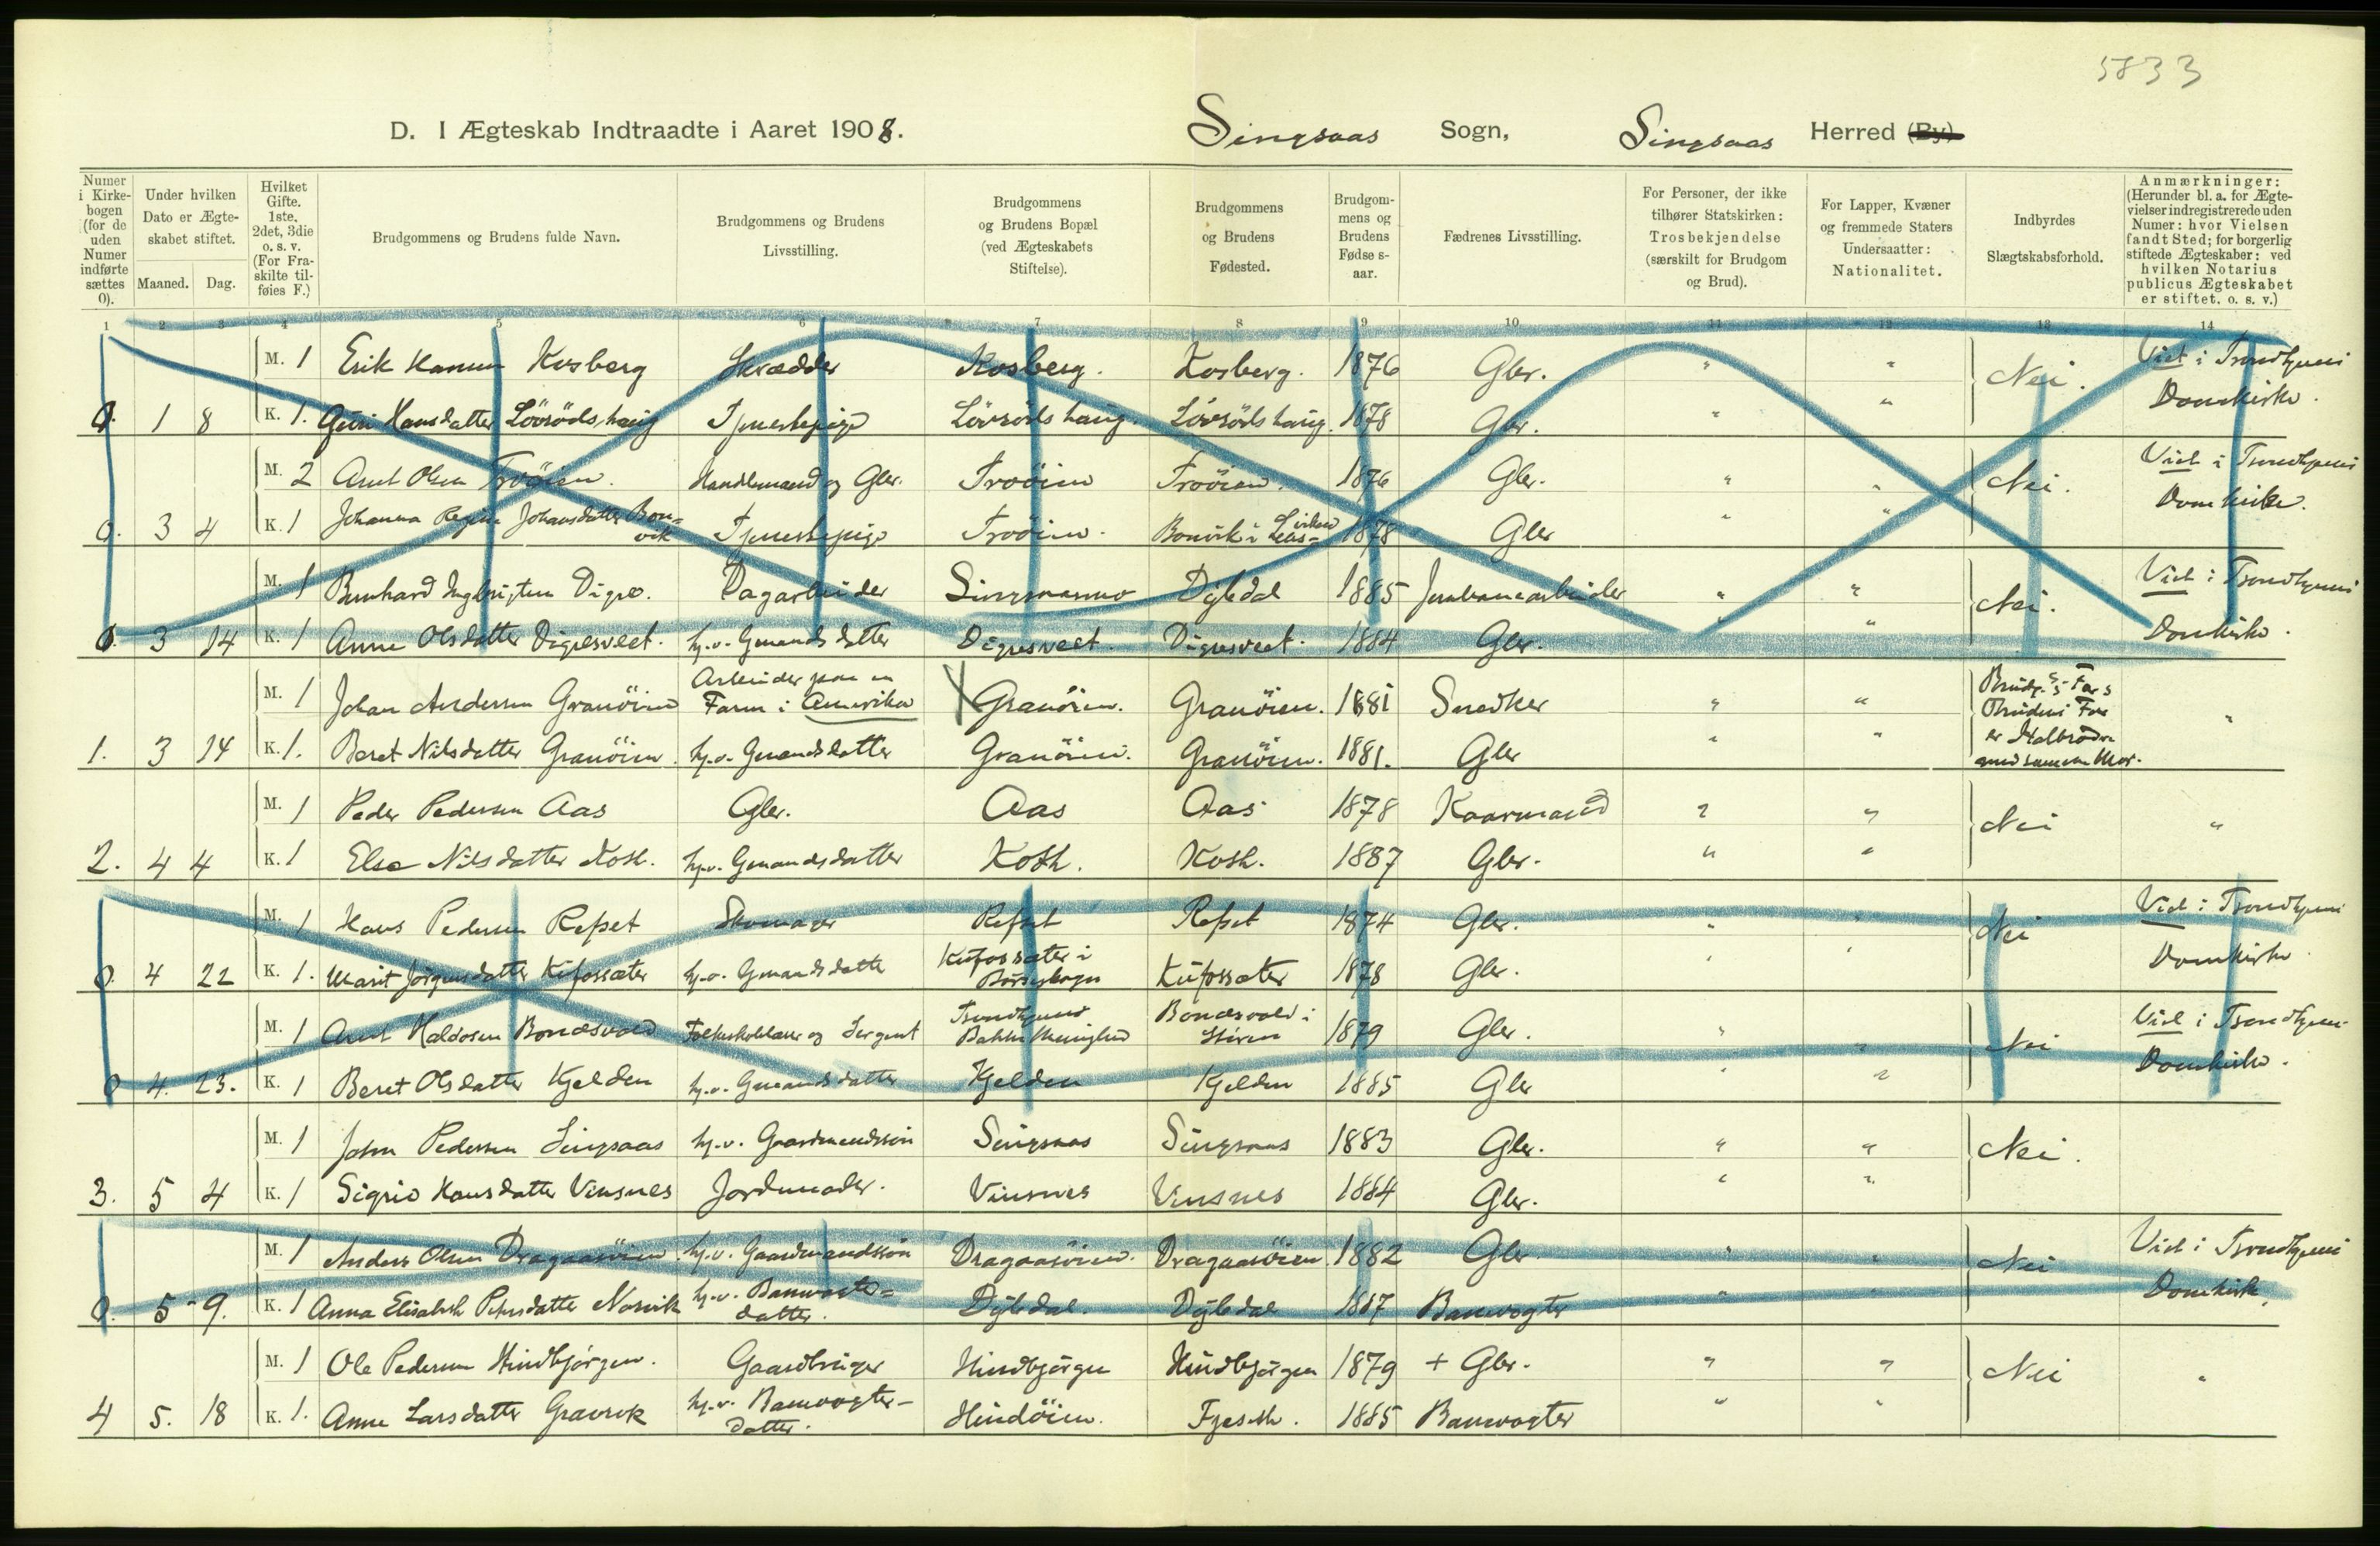 5833
D. I Ægteskab Indtraadte i Aaret 1908. Singsaas Sogn, Singsaas Herred (By)
Numer i Kirkebogen (for de uden Numer indførte sættes 0).
Under hvilken Dato er Ægteskabet stiftet.
Maaned. Dag.
Hvilket Gifte. 1ste, 2det, 3die o. s. v. (For Fraskilte tilføies F.)
Brudgommens og Brudens fulde Navn.
Brudgommens og Brudens Livsstilling.
Brudgommens og Brudens Bopæl (ved Ægteskabets Stiftelse).
Brudgommens og Brudens Fødested.
Brudgommens og Brudens Fødse s-aar.
Fædrenes Livsstilling.
For Personer, der ikke tilhører Statskirken: Trosbekjendelse (særskilt for Brudgom og Brud).
For Lapper, Kvæner og fremmede Staters Undersaatter: Nationalitet.
Indbyrdes Slægtskabsforhold.
Anmærkninger: (Herunder bl. a. for Ægtevielser indregistrerede uden Numer: hvor Vielsen fandt Sted; for borgerlig stiftede Ægteskaber: ved hvilken Notarius publicus Ægteskabet er stiftet. o. s. v.)
1 2 3 4 5 6 7 8 9 10 11 12 13 14
M. 1 Erik Hansen Kosberg Skrædder Kosberg. Kosberg. 1876 Gbr. " " Nei. Viet i Trondhjems
0. 1 8 K. 1. Guri Hansdatter Lövsödshaug Tjenestepige Lövsödshaug. Lövsödshaug. 1878 Gbr. " " Domkirke.
M. 2 Arnt Olsen Tröien. Handlemand og Gbr. Tröien Tröien. 1876 Gbr. " " Nei. Viet i Trondhjems
0. 3 4 K. 1 Johanna Regine Johansdatter Bonvik Tjenestepige Tröien. Bonvik i 1878 Gbr " " Domkirke.
M. 1 Bernhard Ingbrigtsen Digre. Dagarbeider Singsaasmo Dybdal 1885 Jernbanearbeider " " Nei. Viet i Trondhjems
0. 3 14 K. 1 Anne Olsdatter Digresveet. hj.v. Gmandsdatter Digresveet. Digresveet. 1884 Gbr. " " Domkirke.
M. 1 Johan Andersen Granöien Arbeider paa en Farm i Amerika X Granöien. Granöien. 1881 Snedker " " Brudg.s Far & Brudens Far er Halvbrödre med samme Mor. "
1. 3 14 K. 1. Beret Nilsdatter Granöien. hj.v. Gmandsdatter Granöien. Granöien. 1881. Gbr " "
M. 1 Peder Pedersen Aas Gbr. Aas Aas 1878 Kaarmand " " Nei "
2. 4 4 K. 1 Else Nilsdatter Kosh. hj.v. Gmandsdatter Kosh. Kosh. 1887 Gbr. " "
M. 1 Hans Pedersen Refset Skomager Refset Refset 1874 Gbr. " " Nei Viet i Trondhjems
0. 4 22 K. 1. Marit Jörgensdatter Kufossæter hj.v. Gmandsdatter Kufossæter i Börseskogn Kufossæter 1878 Gbr. " " Domkirke.
M. 1 Arnt Haldosen Bonæsvold Folkeskolelærer og Sergeant Trondhjems Bakke Menighed Bonæsvold i Stören 1879 Gbr. " " Nei Viet i Trondhjems
0 4. 23. K. 1 Beret Olsdatter Kjelden hj.v. Gmandsdatter Kjelden Kjelden 1885 Gbr " " Domkirke.
M. 1 John Pedersen Singsaas hj.v. Gaardmandssön Singsaas Singsaas 1883 Gbr. " " Nei.
3. 5 4 K. 1 Sigrid Hansdatter Vinsnes Jordmoder. Vinsnes Vinsnes 1884 Gbr. " "
M. 1 Anders Olsen Dragaasöien. hj.v. Gaardmandssön Dragaasöien. Dragaasöien. 1882 Gbr " " Nei Viet i Trondhjems
0. 5 9. K. 1 Anna Elisabeth Petersdatter Norvik hj.v. Banevogterdatter. Dybdal. Dybdal 1887 Banevogter " " Domkirke.
M. 1 Ole Pedersen Hindbjörgen. Gaardbruger Hindbjörgen Hindbjörgen 1879 + Gbr. " " Nei "
4 5. 18 K. 1. Anne Larsdatter Gravrok hj.v. Banevogterdatter. Hindöien. 1885 Banevogter " "